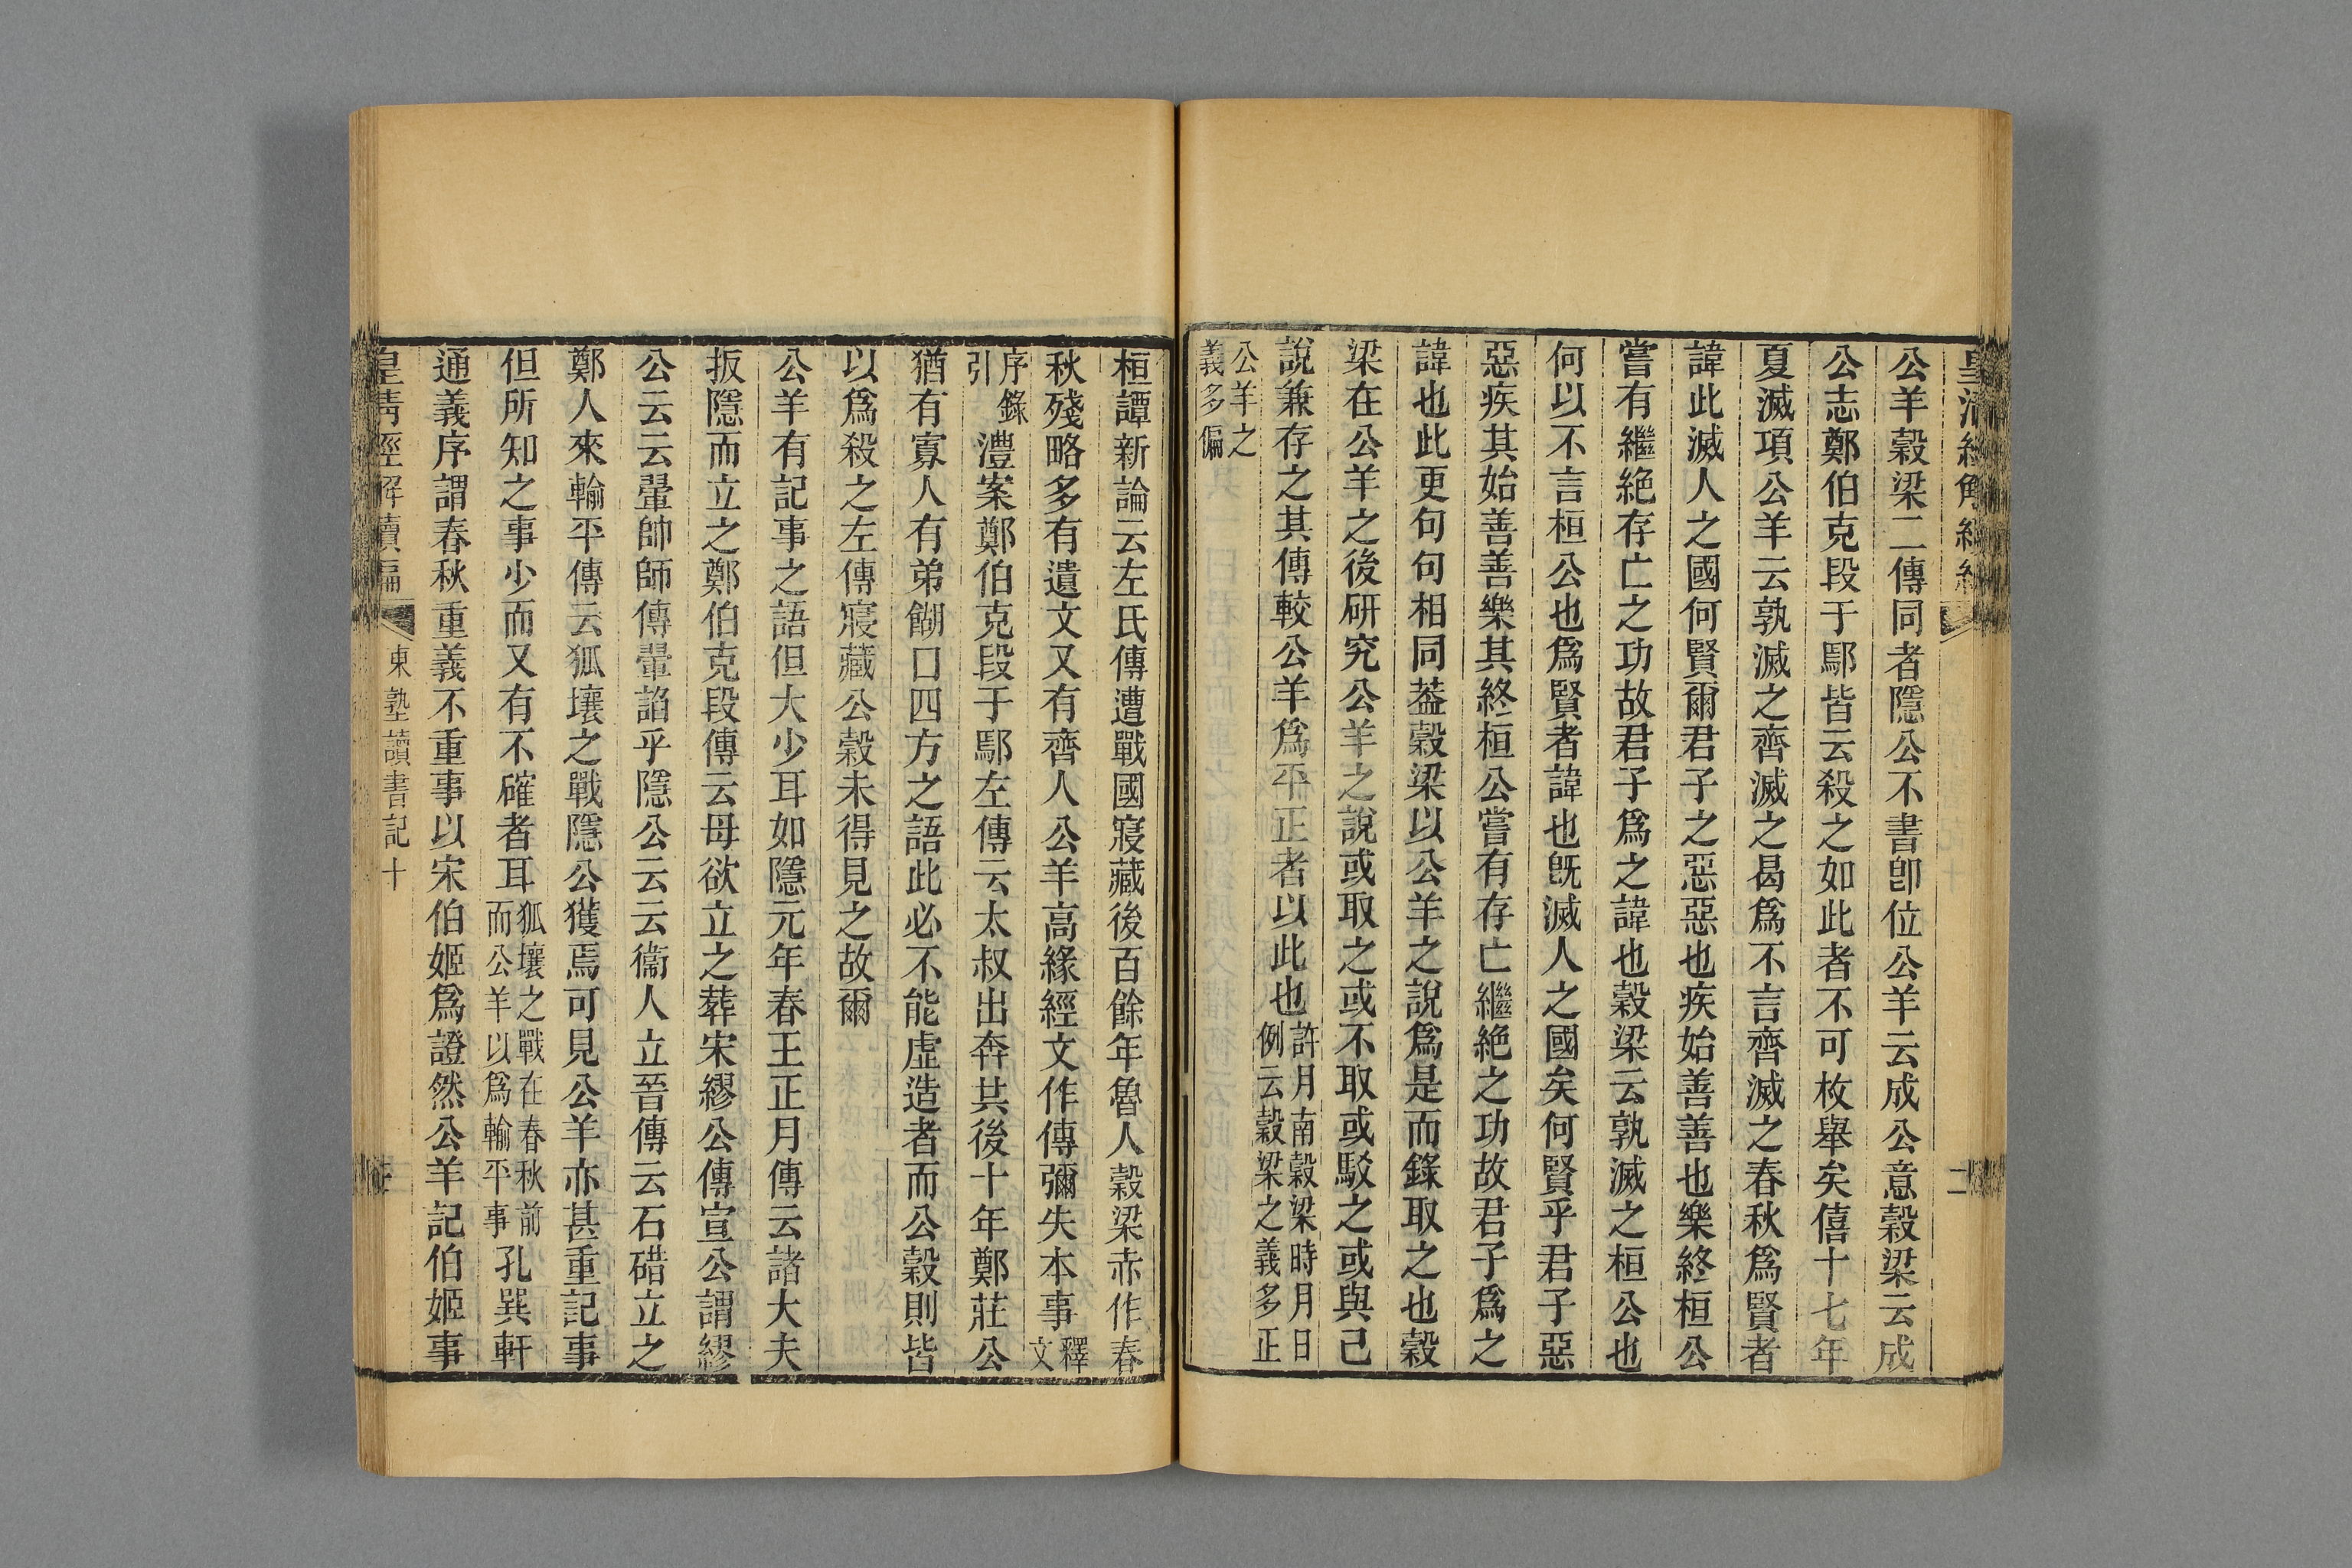 公羊穀梁二傳同者隱公不書卽位公羊云成公意穀梁云成
公志鄭伯克段于鄢皆云殺之如此者不可枚舉矣僖十七年
夏滅項公羊云孰滅之齊滅之曷爲不言齊滅之春秋爲賢者
諱此滅人之國何賢爾君子之惡惡也疾始善善也樂終桓公
嘗有繼絕存亡之功故君子爲之諱也穀梁云孰滅之桓公也
何以不言桓公也爲賢者諱也旣滅人之國矣何賢乎君子惡
惡疾其始善善樂其終桓公嘗有存亡繼絕之功故君子爲之
諱也此更句句相同葢穀梁以公羊之說爲是而錄取之也穀
梁在公羊之後硏究公羊之說或取之或不取或駁之或與己
說兼存之其傳較公羊爲平正者以此也許月南穀梁時月日例云穀梁之義多正
公羊之義多偏
桓譚新論云左氏傳遭戰國寢藏後百餘年魯人穀梁赤作春
秋殘略多有遺文又有齊人公羊高緣經文作傳彌失本事釋文
序錄引澧案鄭伯克段于鄢左傳云太叔出奔共後十年鄭莊公
猶有寡人有弟餬口四方之語此必不能虛造者而公穀則皆
以爲殺之左傳寢藏公穀未得見之故爾
公羊有記事之語但大少耳如隱元年春王正月傳云諸大夫
扳隱而立之鄭伯克段傳云母欲立之葬宋繆公傳宣公謂繆
公云云翬帥師傳翬諂乎隱公云云衞人立晉傳云石碏立之
鄭人來輸平傳云狐壤之戰隱公獲焉可見公羊亦甚重記事
但所知之事少而又有不確者耳狐壤之戰在春秋前而公羊以爲輸平事孔巽軒
通義序謂春秋重義不重事以宋伯姬爲證然公羊記伯姬事
皇淸經解續編 東塾讀書記十